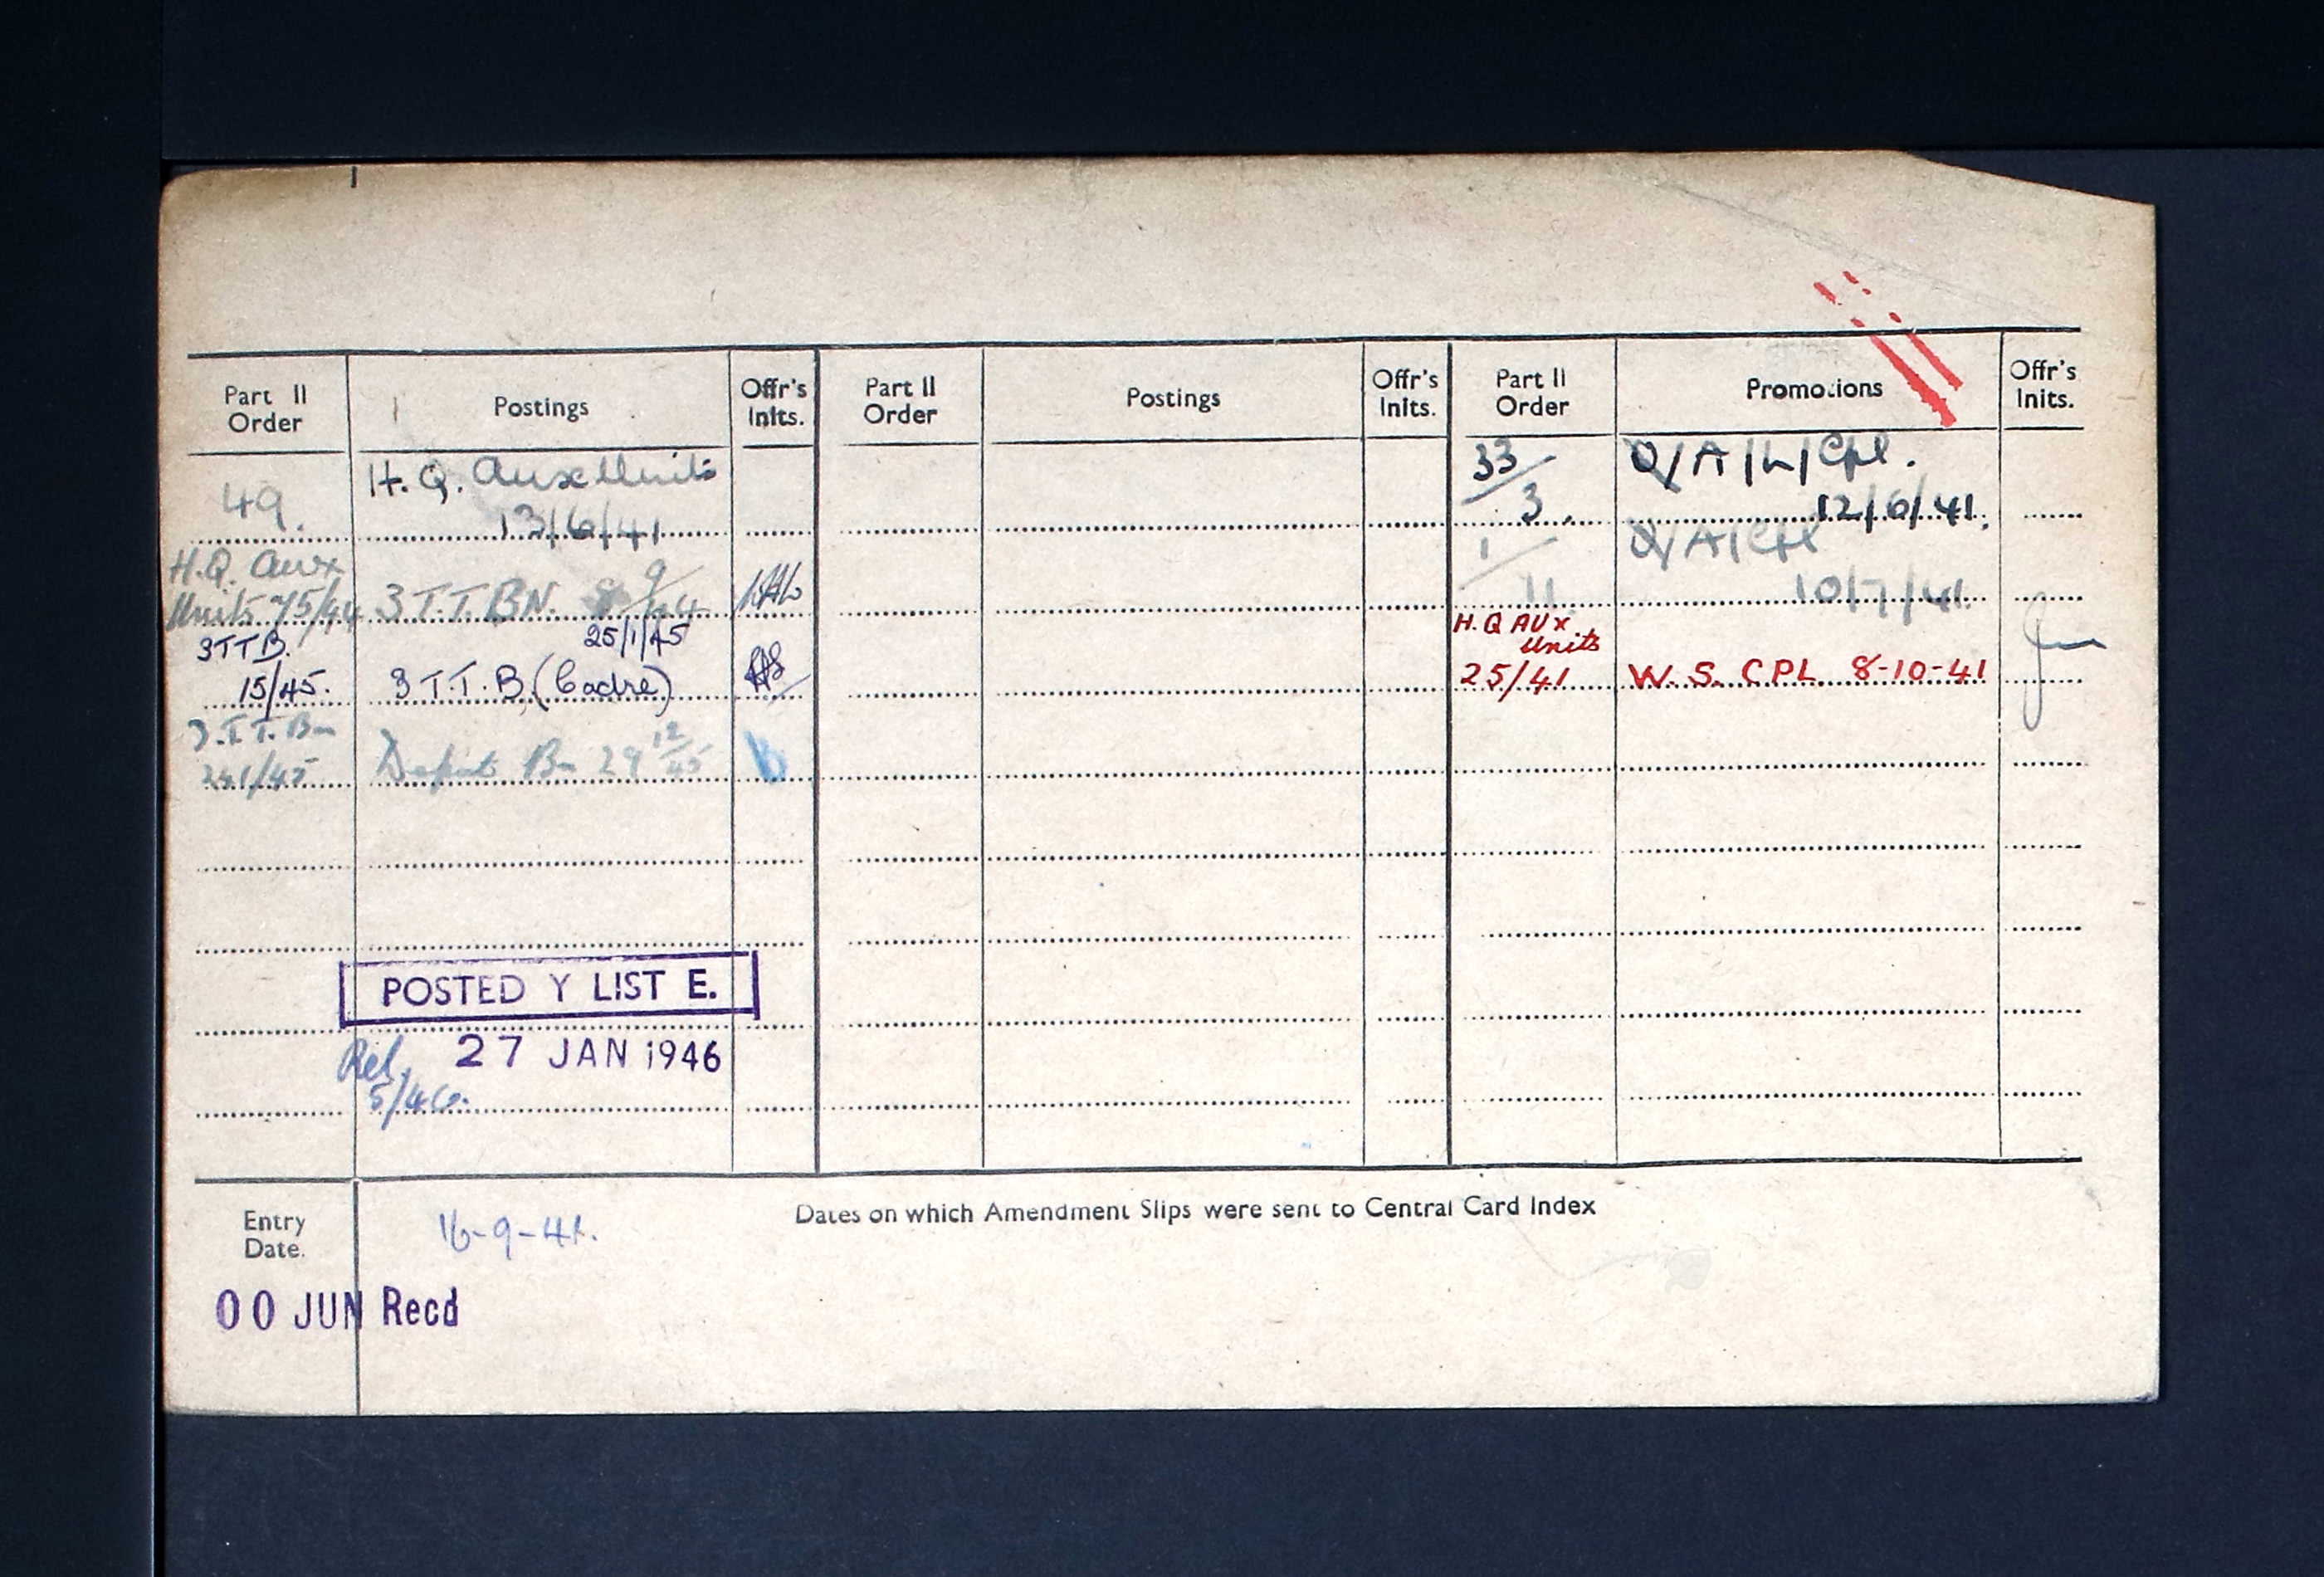 Part II Order
Postings
Offr's Inits.
Part II Order
Postings
Offr's Inits.
Part II Order
Promotions
Offr's Inits.
49.
H.Q. Aux Units
13/6/41
H.Q. Aux
Units 75/44
3 T.T. BN. 8 9/44
3 T T B.
15/45.
25/1/45
3 T.T.B. (Cadre)
3.T.T. Bn
241/45
Depot Bn 29 12/45
POSTED Y LIST E.
27 JAN 1946
Rel.
5/46.
33/3.
/A/L/Cpl.
12/6/41.
1/11.
/A/Cpl
10/7/41.
H.Q AUX
Units
25/41
W. S. CPL 8-10-41
Entry Date.
16-9-41.
Dates on which Amendment Slips were sent to Central Card Index
00 JUN Recd